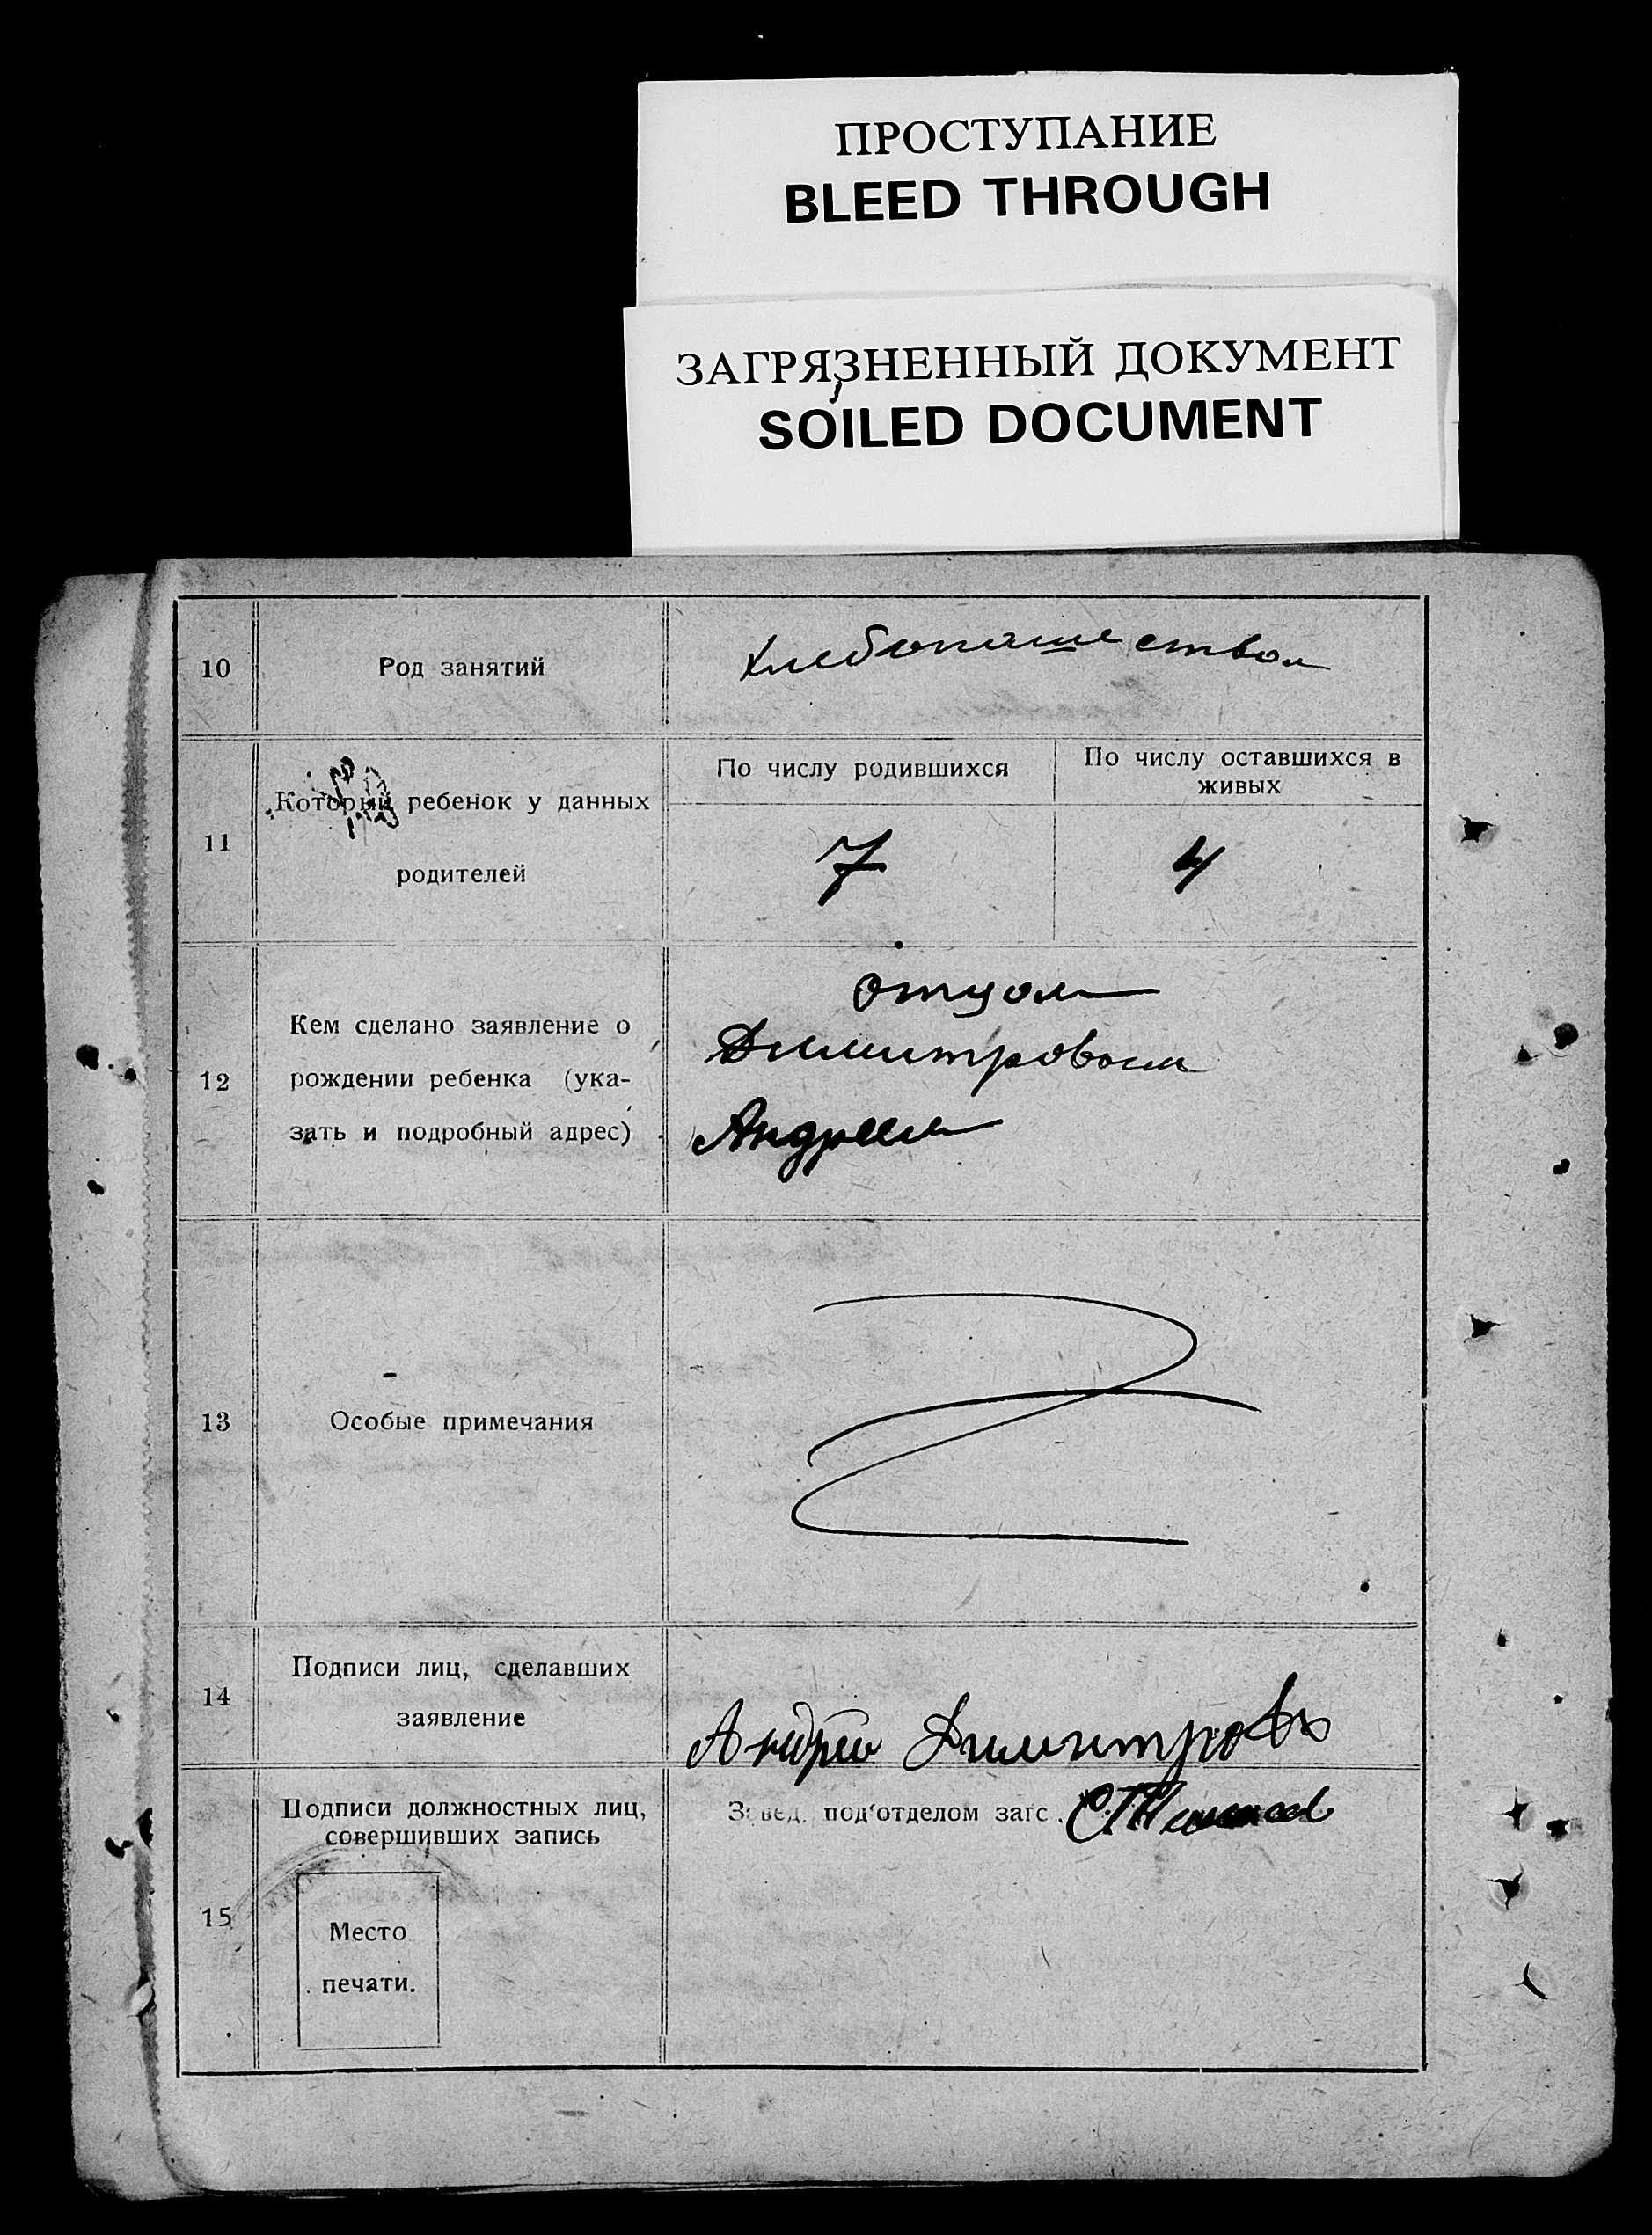 ПРОСТУПАНИЕ
BLEED THROUGH
ЗАГРЯЗНЕННЫЙ ДОКУМЕНТ
SOILED DOCUMENT
10
Род занятий
Хлебопашеством
11
Который ребенок у данных
родителей
По числу родившихся
По числу оставшихся в
живых
7
4
12
Кем сделано заявление о
рождении ребенка (ука-
зать и подробный адрес)
отцом
Димитровым
Андреем
13
Особые примечания
14
Подписи лиц, сделавших
заявление
Андрей Димитровъ
15
Подписи должностных лиц,
совершивших запись
Завед. под'отделом загс.
Место
печати.